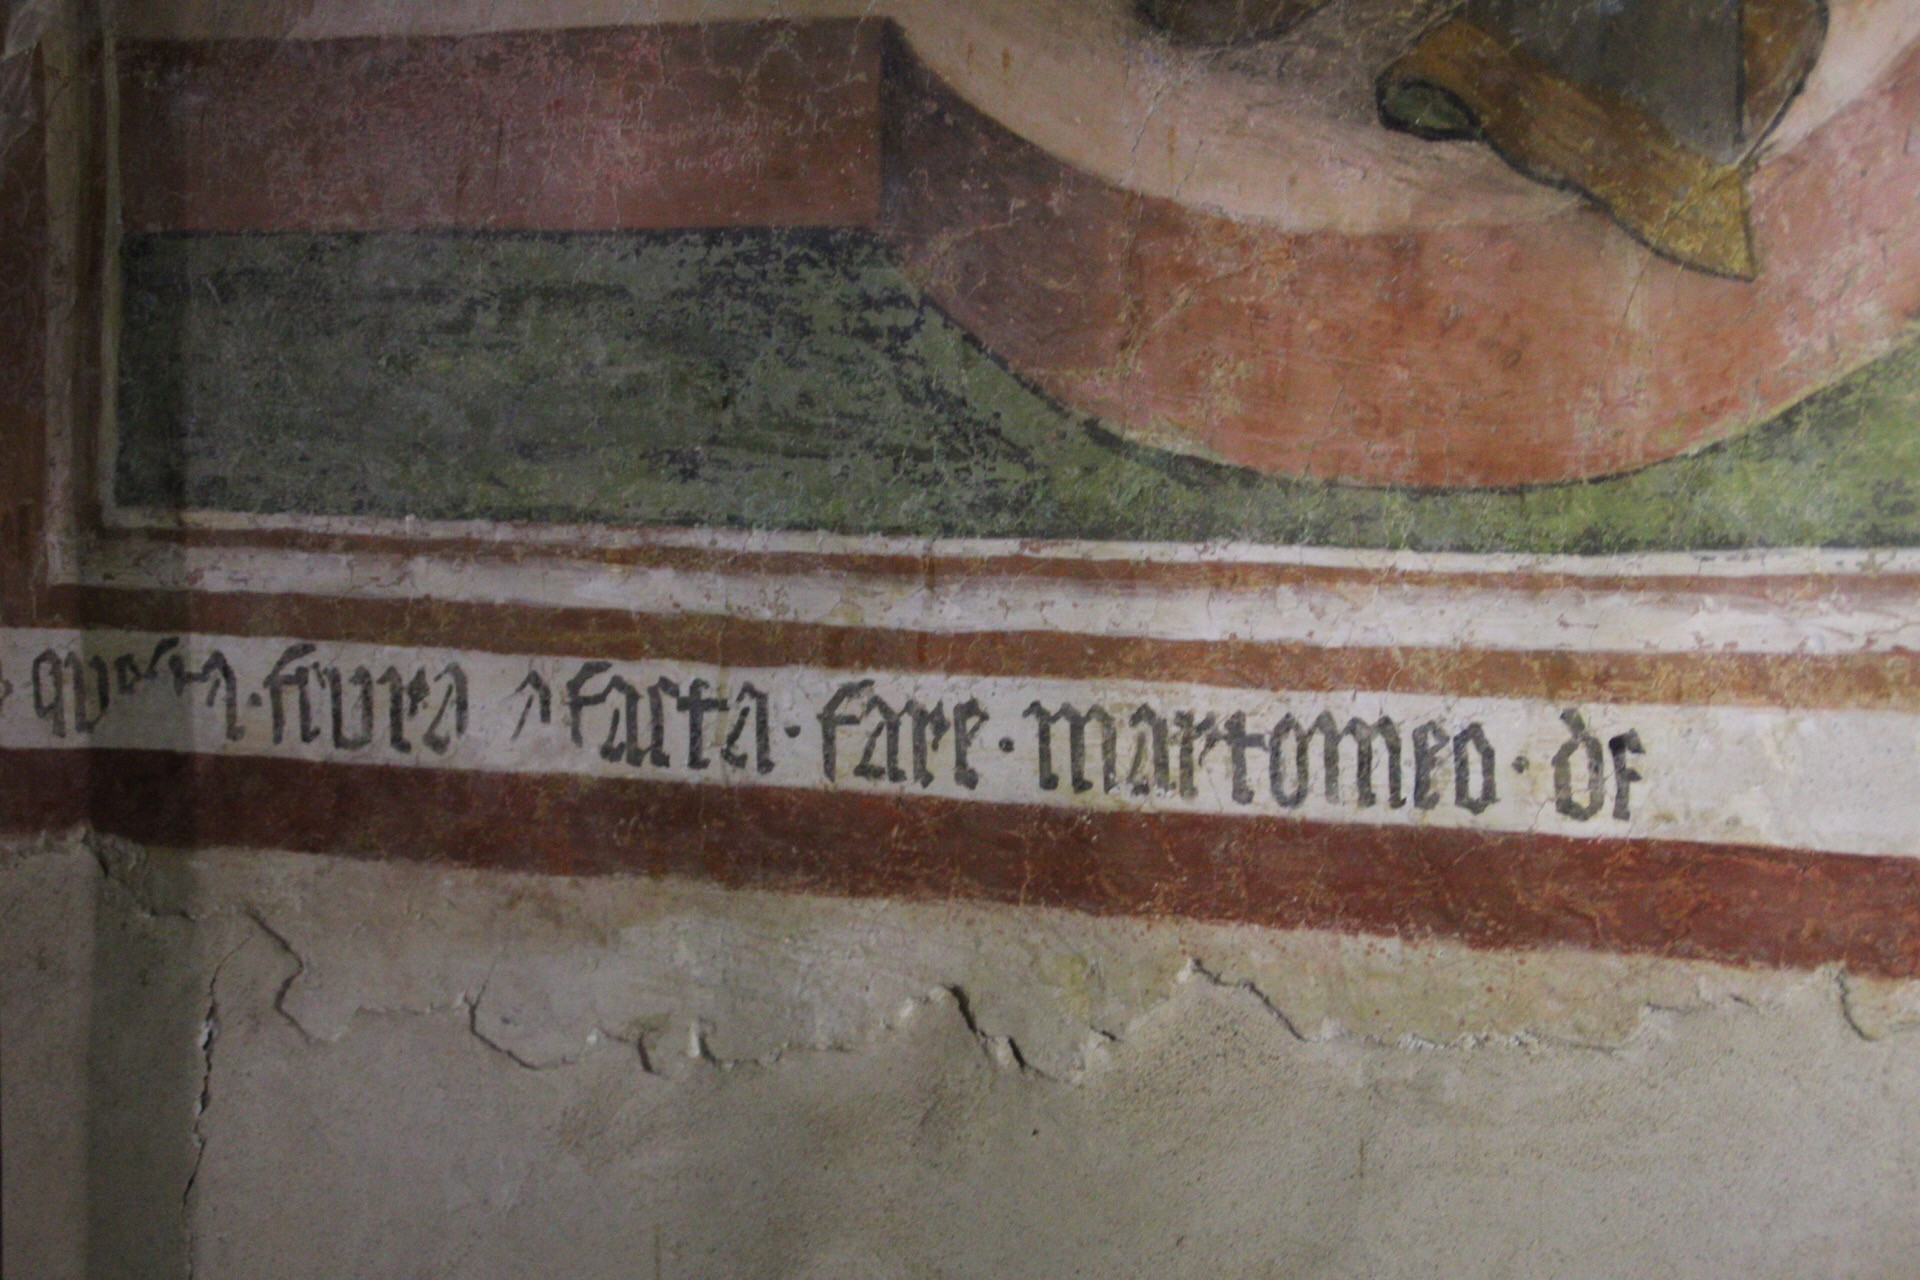 questa · fiura a facta · fare · martomeo · de